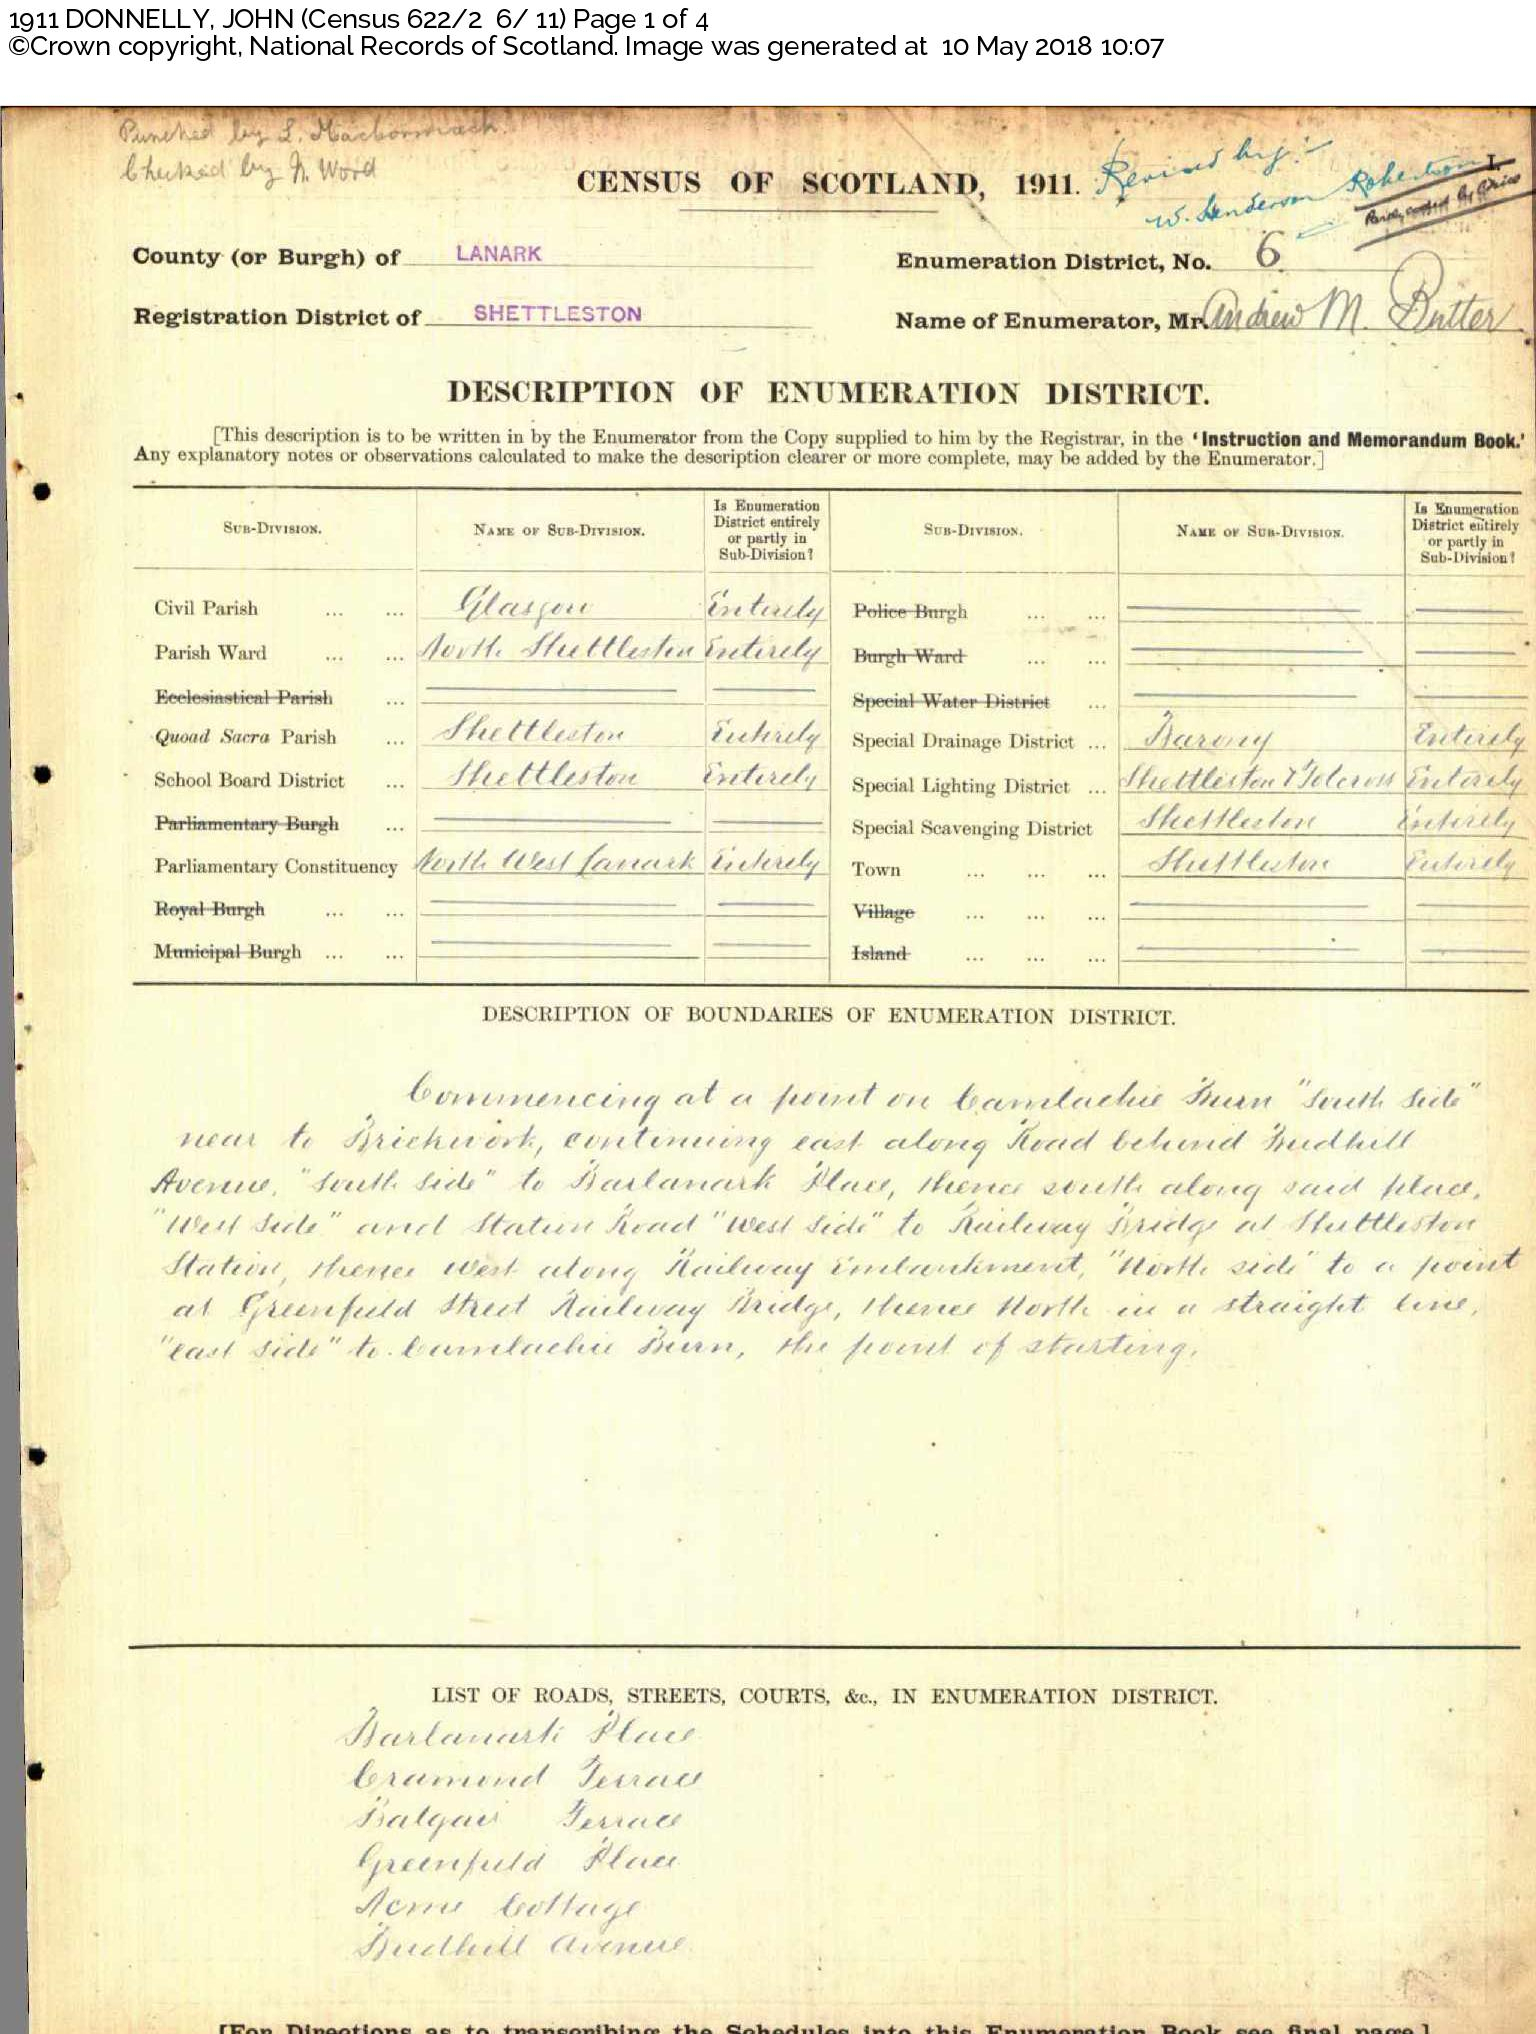 1911 DONNELLY, JOHN (Census 622/2 6/ 11) Page 1 of 4
©Crown copyright, National Records of Scotland. Image was generated at 10 May 2018 10:07
Punched by L. MacCormack.
Checked by N. Word
CENSUS OF SCOTLAND, 1911.
Revised by:-
W. Henderson Robertson
I.
County (or Burgh) of LANARK
Enumeration District, No. 6
Registration District of SHETTLESTON
Name of Enumerator, Mr. Andrew M. Butter
DESCRIPTION OF ENUMERATION DISTRICT.
[This description is to be written in by the Enumerator from the Copy supplied to him by the Registrar, in the 'Instruction and Memorandum Book.'
Any explanatory notes or observations calculated to make the description clearer or more complete, may be added by the Enumerator.]
SUB-DIVISION. NAME OF SUB-DIVISION. Is Enumeration District entirely or partly in Sub-Division? SUB-DIVISION. NAME OF SUB-DIVISION. Is Enumeration District entirely or partly in Sub-Division?
Civil Parish ... ... Glasgow Entirely Police Burgh ... ...
Parish Ward ... ... North Shettleston Entirely Burgh Ward ... ...
Ecclesiastical Parish ... Special Water District ...
Quoad Sacra Parish ... Shettleston Entirely Special Drainage District ... Barony Entirely
School Board District ... Shettleston Entirely Special Lighting District ... Shettleston & Tolcross Entirely
Parliamentary Burgh ... Special Scavenging District Shettleston Entirely
Parliamentary Constituency North West Lanark Entirely Town ... ... ... Shettleston Entirely
Royal Burgh ... ... Village ... ... ...
Municipal Burgh ... ... Island ... ... ...
DESCRIPTION OF BOUNDARIES OF ENUMERATION DISTRICT.
Commencing at a point on Camlachie Burn "South Side"
near to Brickwork, continuing east along Road behind Budhill
Avenue, "South Side" to Barlanark Place, thence south along said place,
"West Side" and Station Road "West Side" to Railway Bridge at Shettleston
Station, thence West along Railway Embankment, "North side" to a point
at Greenfield Street Railway Bridge, thence North in a straight line,
"east side" to Camlachie Burn, the point of starting.
LIST OF ROADS, STREETS, COURTS, &c., IN ENUMERATION DISTRICT.
Barlanark Place
Cramond Terrace
Balgair Terrace
Greenfield Place
Acme Cottage
Budhill Avenue
[For Directions as to transcribing the Schedules into this Enumeration Book see final page.]